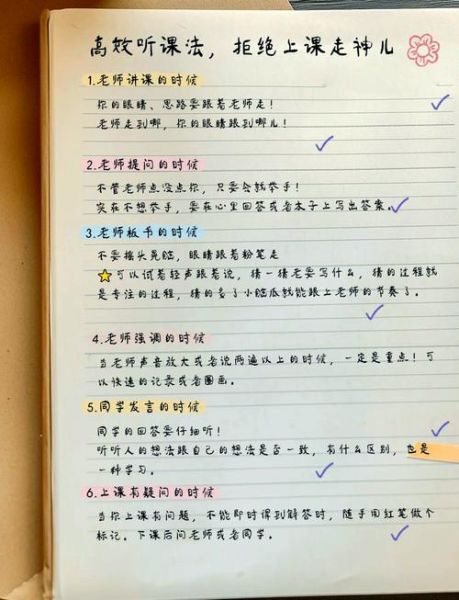 高效听课法，拒绝上课走神儿
1.老师讲课的时候
你的眼睛、思路要跟着老师走！
老师走到哪，你的眼睛跟到哪儿！
2.老师提问的时候
不管老师点没点你，只要会就举手！
实在不想举手，要在心里回答或者本子上写出答案。
3.老师板书的时候
不要摇头晃脑，眼睛跟着粉笔走
可以试着轻声跟着说，猜一猜老要写什么，猜的过程就
是专注的过程，猜的多了小脑瓜就能跟上老师的节奏了。
4.老师强调的时候
当老师声音放大或者说两遍以上的时候，一定是重点！可
以快速的记录或者圈画。
5.同学发言的时候
同学的回答要仔细听！
听听人的想法跟自己的想法是否一致，有什么区别，也是
一种学习。
6.上课有疑问的时候
当你上课有问题，不能即时得到解答时，随手用红笔做个
标记。下课后问老师或者同学。